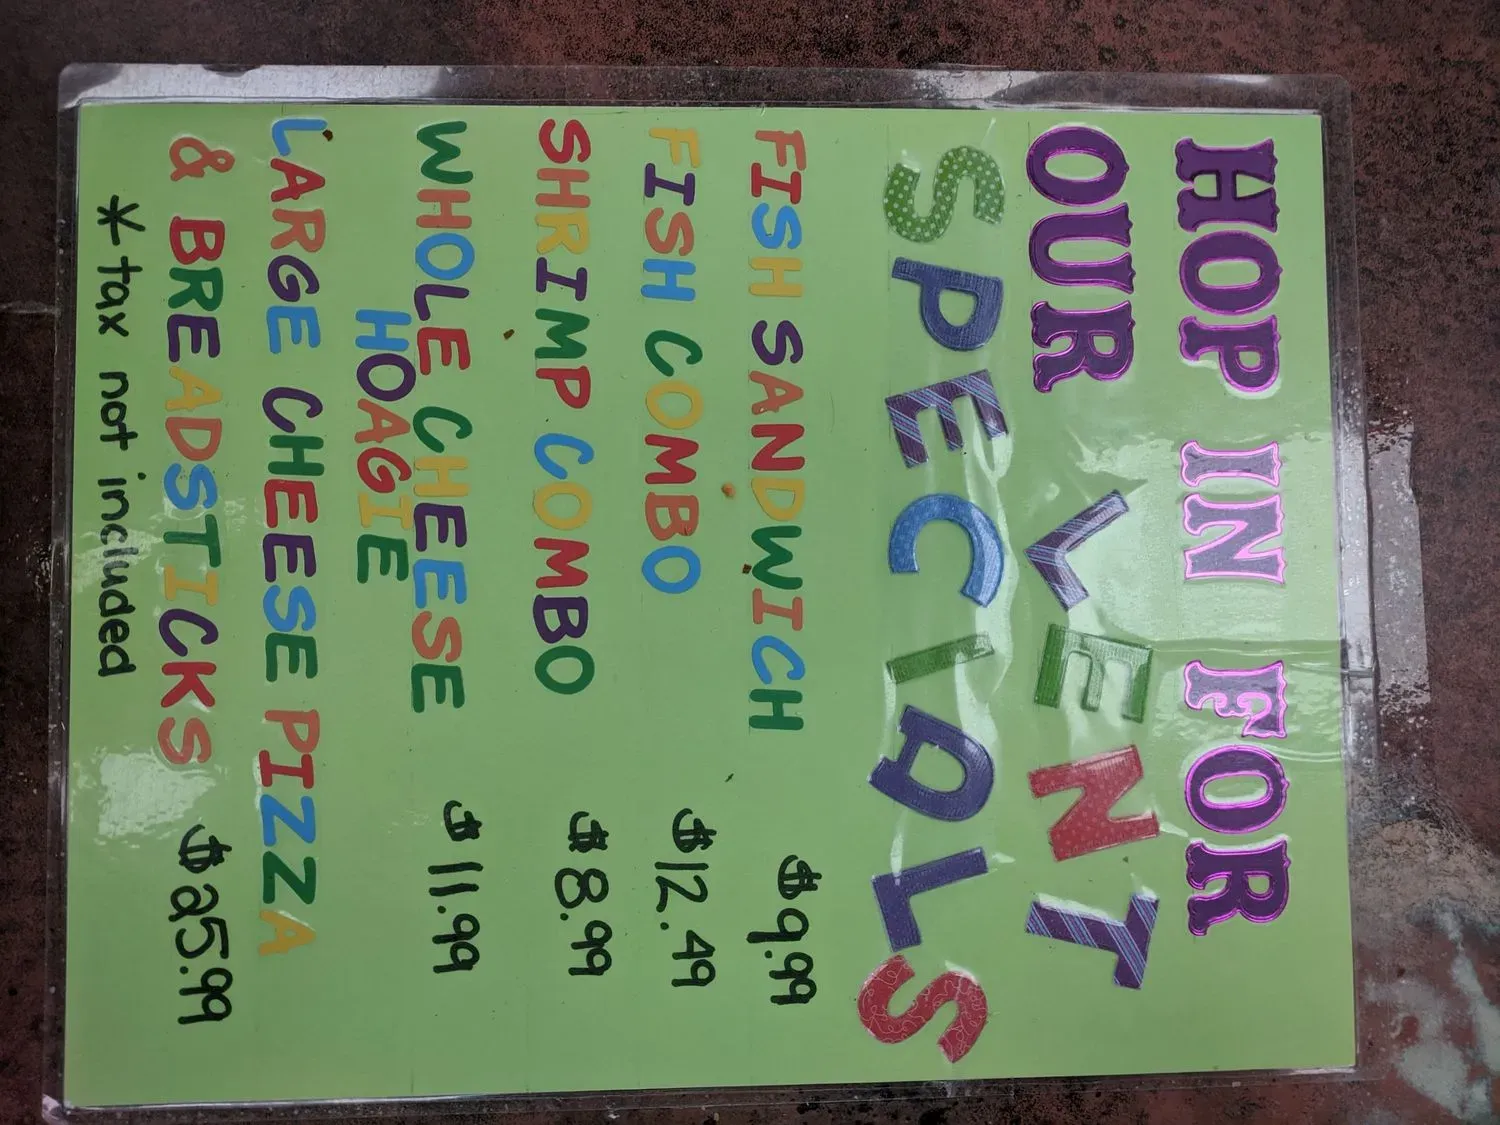 HOP IN FOR
OUR LENT
SPECIALS
FISH SANDWICH $9.99
FISH COMBO $12.49
SHRIMP COMBO $8.99
WHOLE CHEESE $11.99
HOAGIE
LARGE CHEESE PIZZA
& BREADSTICKS $25.99
*tax not included